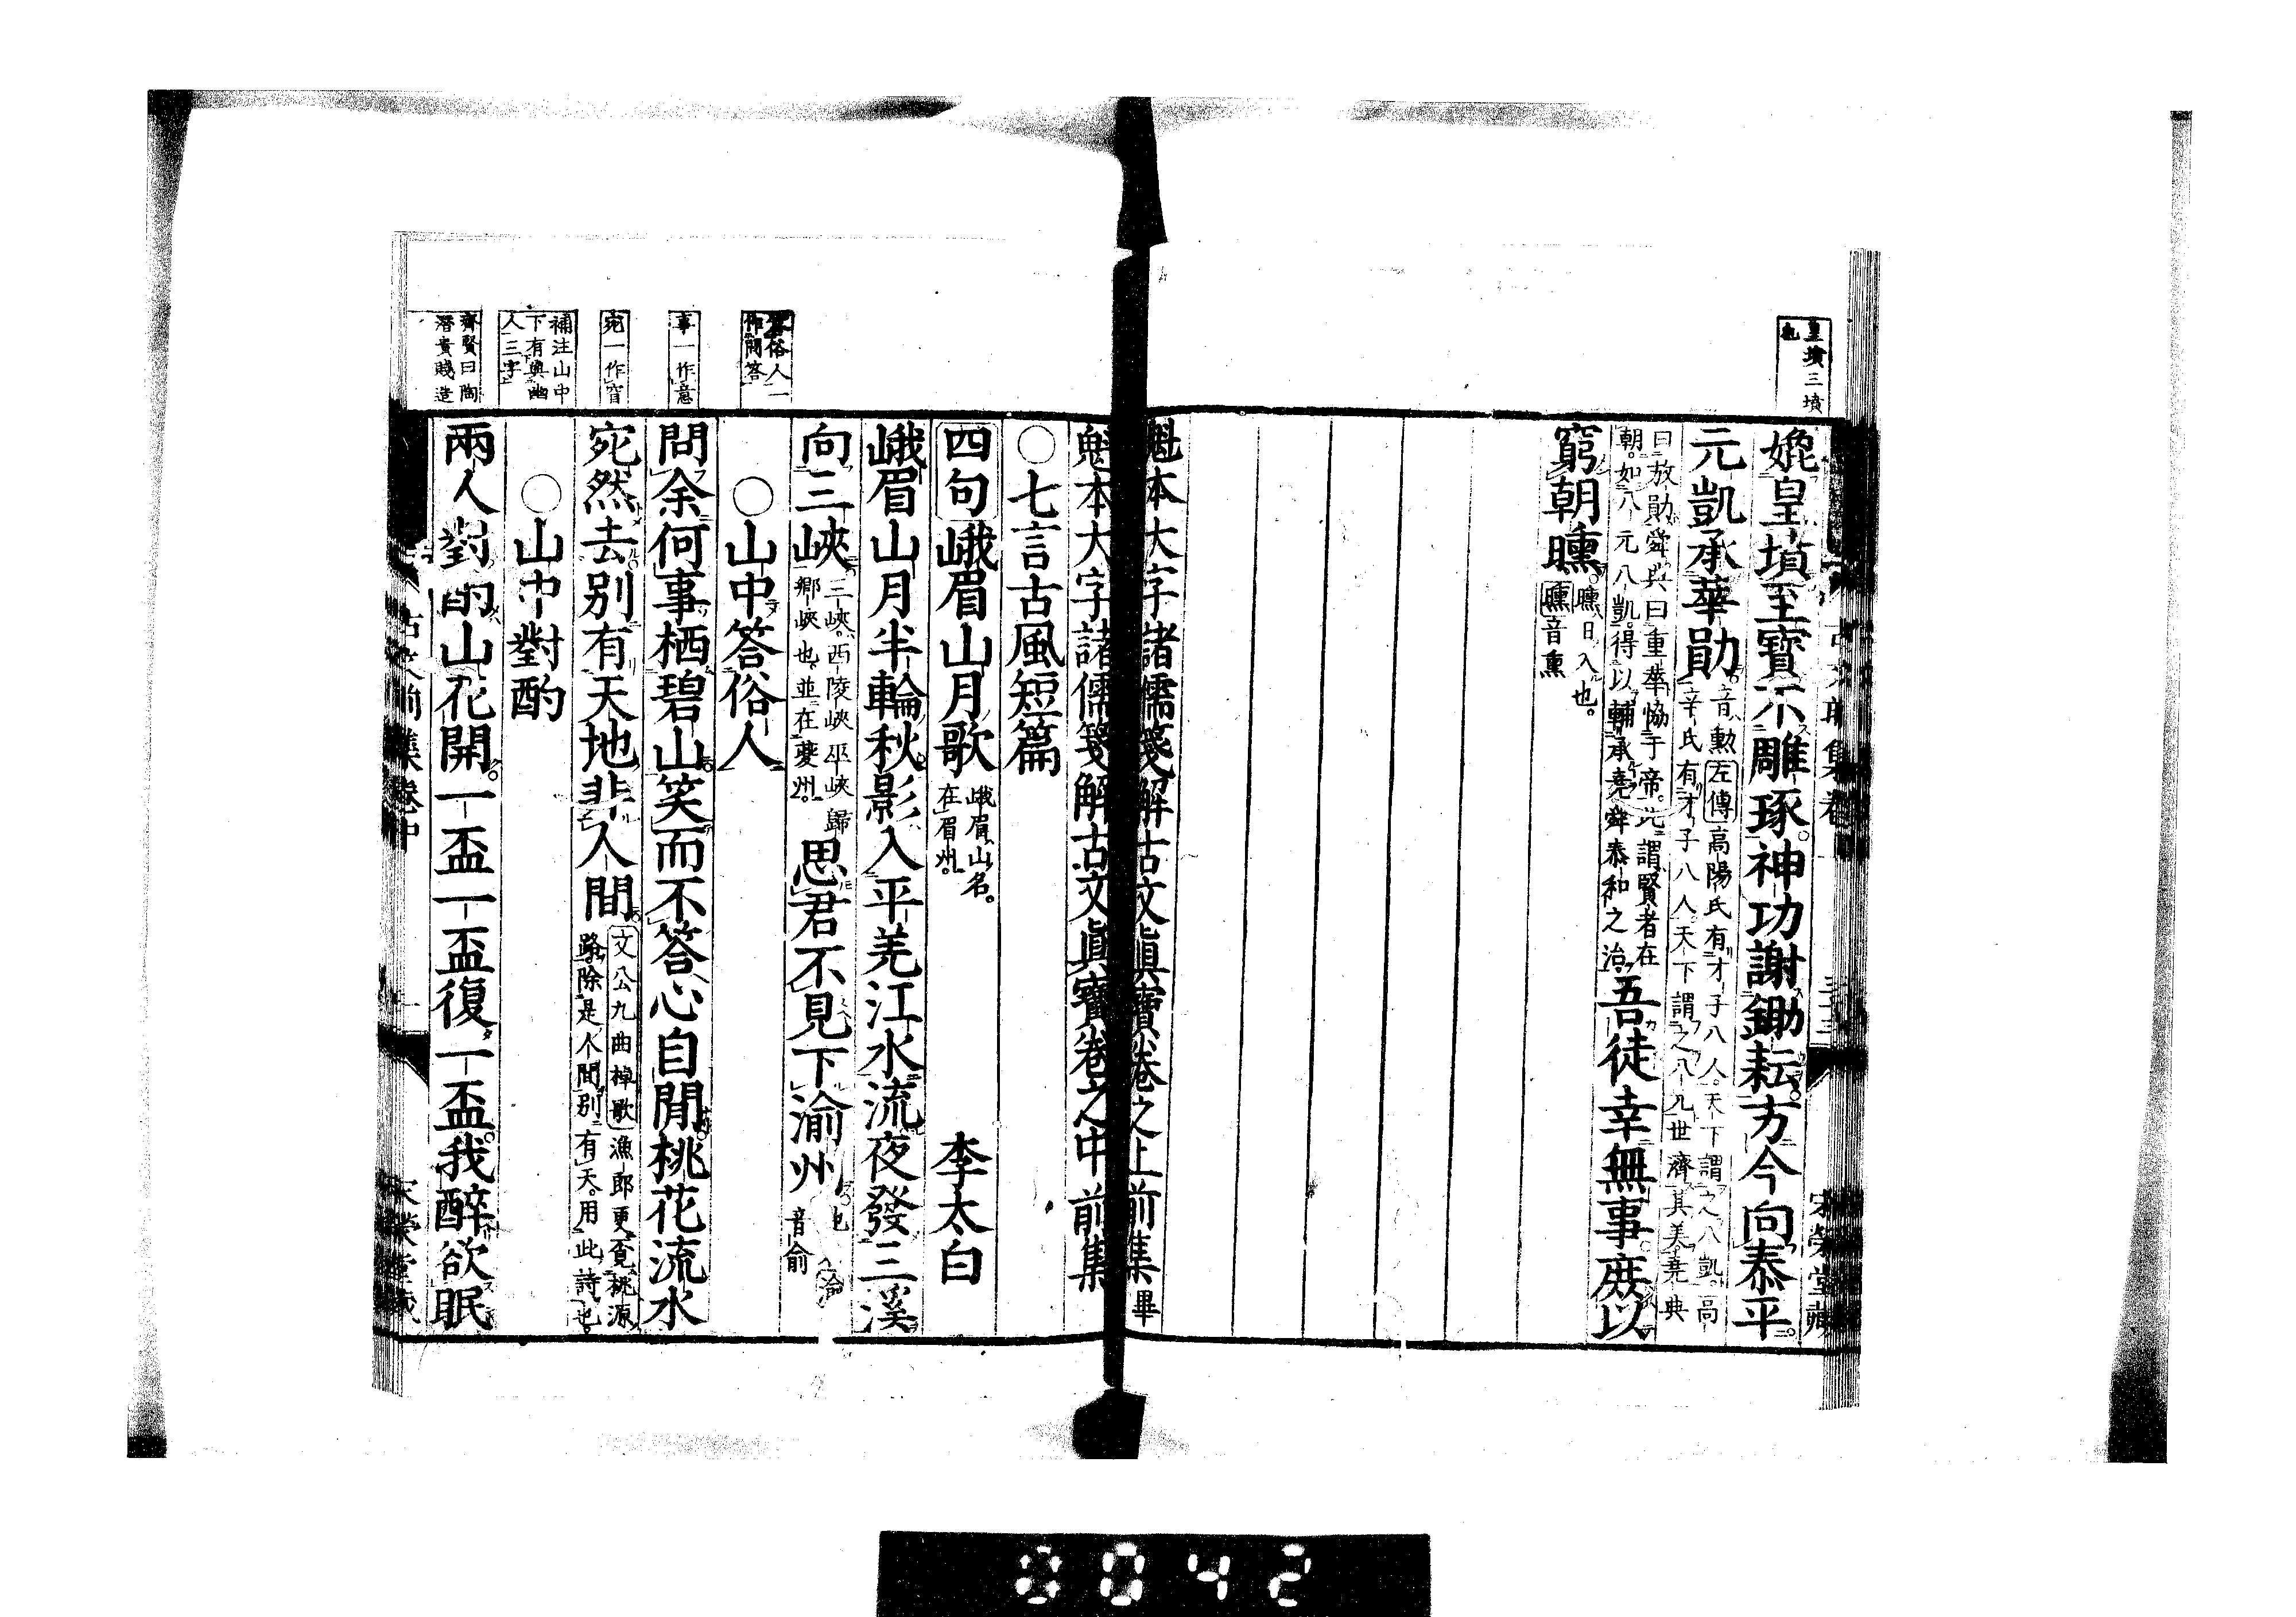 皇墳三墳
也
媲皇墳至寶不雕琢神功謝鋤耘方今向泰平
元凱承華勛
音勳左傳高陽氏有才子八人天下謂之八凱高
辛氏有才子八人天下謂之八元世濟其美堯典
曰放勛舜典曰重華恊于帝此謂賢者在
朝如八元八凱得以輔承堯舜泰和之治
吾徒幸無事庻以
窮朝曛
曛日入也
曛音熏
魁本大字諸儒箋解古文眞寶卷之上前集畢
魁本大字諸儒箋解古文眞寶卷之中前集
○七言古風短篇
四句峨眉山月歌
峨眉山名
在眉州
李太白
峨眉山月半輪秋影入平羌江水流夜發三溪
向三峽
三峽西陵峽巫峽歸
鄉峽也並在夔州
思君不見下渝州
渝
音俞
答俗人一
作問答
○山中答俗人
事一作意
問余何事栖碧山笑而不答心自閒桃花流水
宛一作窅
宛然去別有天地非人間
文公九曲棹歌漁郎更覓桃源
路除是人間別有天用此詩也
補注山中
下有與幽
人三字
○山中對酌
齊賢曰陶
潛貴賤造
兩人對酌山花開一盃一盃復一盃我醉欲眠
古文前集卷中
宋榮堂藏
0042